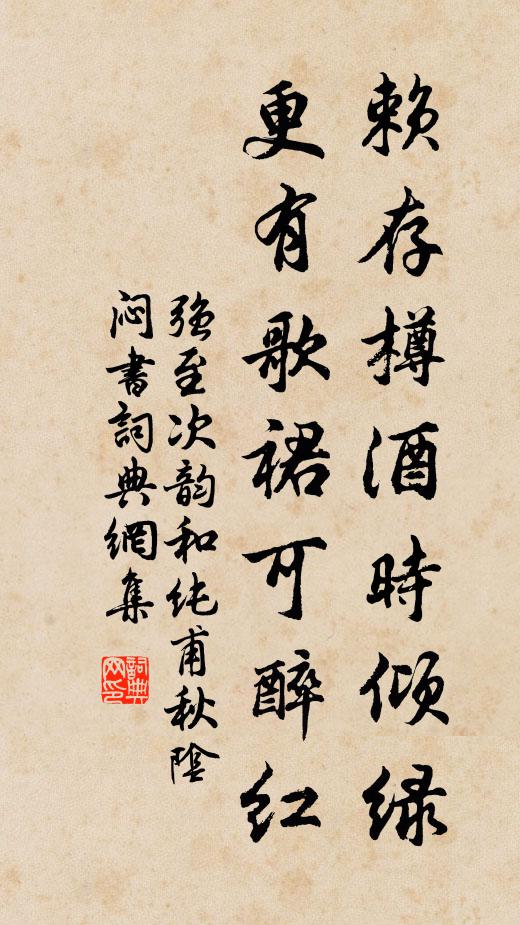 赖存樽酒时倾绿
更有歌裙可醉红
强至次韵和纯甫秋阴
闷书詞典網集
詞典
网印